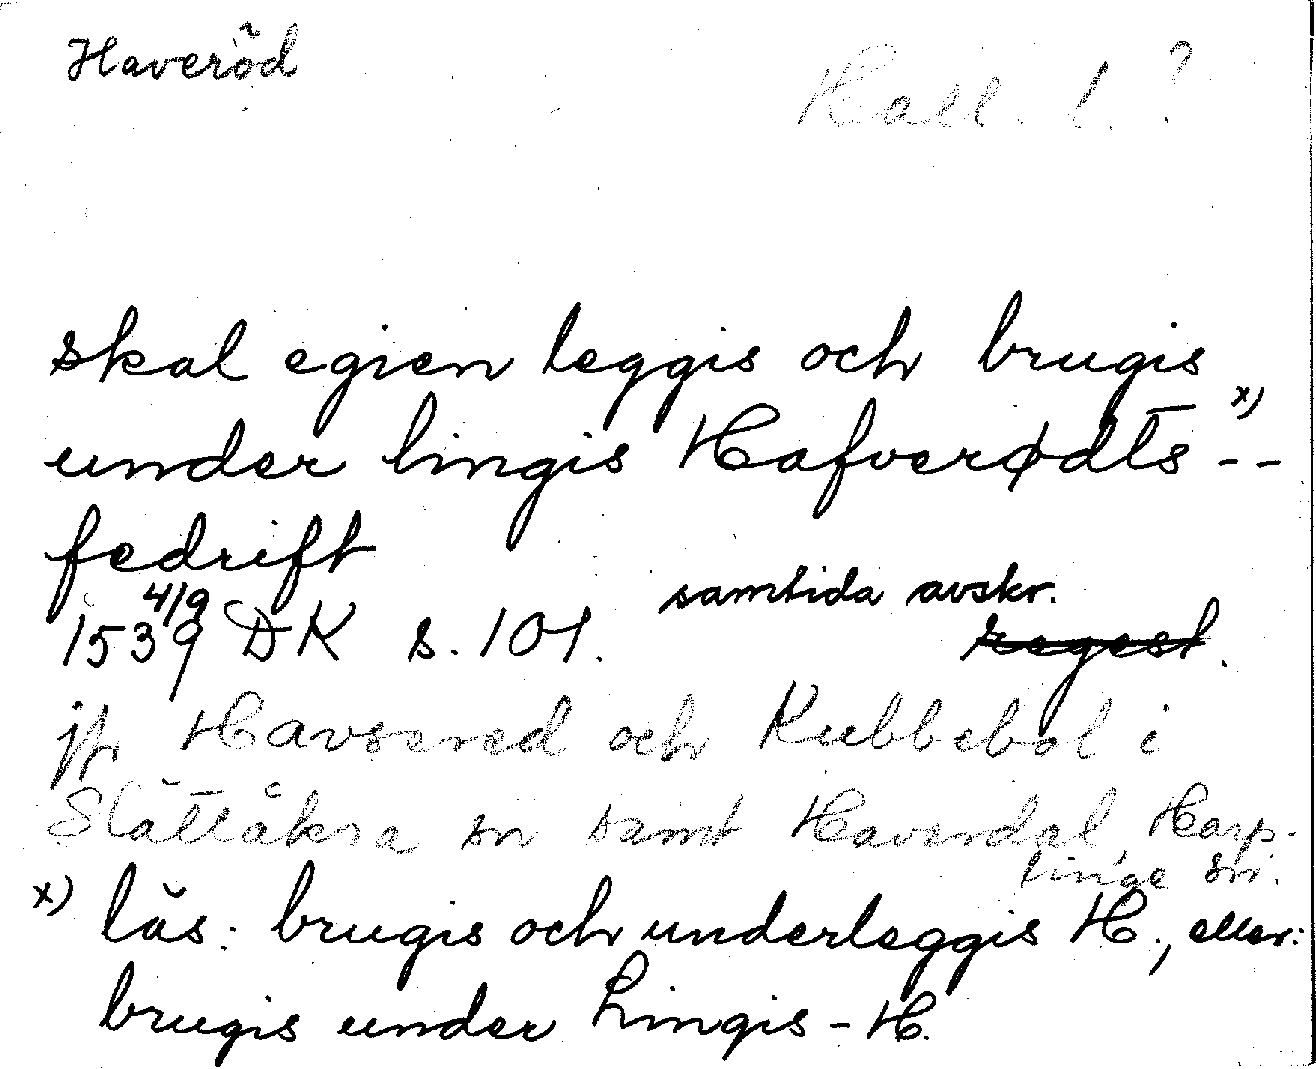 Haveröd
Hall. l. ?
skal egien leggis och brugis
under lingis Hafverødts x) --
fedrift
1539 4/9 DK s. 101. samtida avskr.
regest.
jfr Havsered och Kubbebol i
Slättåkra sn samt Haverdal, Harp-
linge sn.
x) läs: brugis och underleggis H., eller:
brugis under Lingis-H.